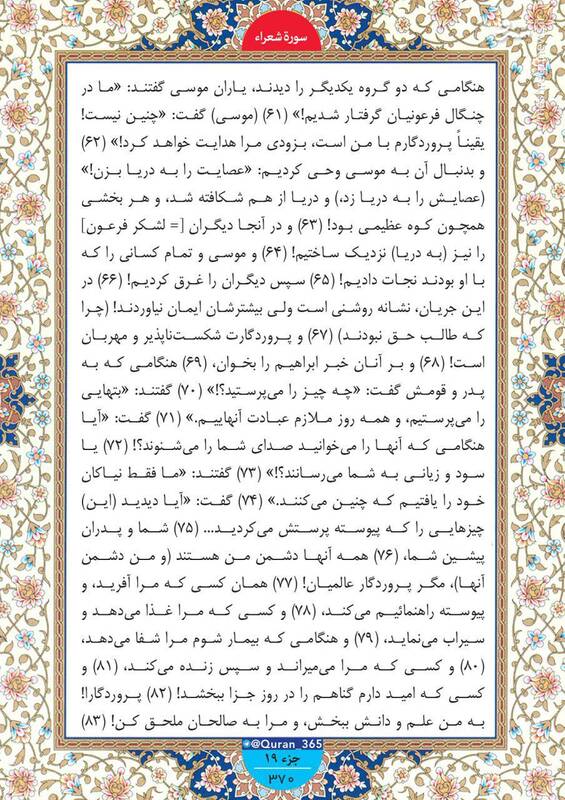 سورة شعراء
هنگامی که دو گروه یکدیگر را دیدند، یاران موسی گفتند: «ما در
چنگال فرعونیان گرفتار شدیم!» (۶۱) (موسی) گفت: «چنین نیست!
یقیناً پروردگارم با من است، بزودی مرا هدایت خواهد کرد!» (۶۲)
و بدنبال آن به موسی وحی کردیم: «عصایت را به دریا بزن!»
(عصایش را به دریا زد،) و دریا از هم شکافته شد، و هر بخشی
همچون کوه عظیمی بود! (۶۳) و در آنجا دیگران [= لشکر فرعون]
را نیز (به دریا) نزدیک ساختیم! (۶۴) و موسی و تمام کسانی را که
با او بودند نجات دادیم! (۶۵) سپس دیگران را غرق کردیم! (۶۶) در
این جریان، نشانه روشنی است ولی بیشترشان ایمان نیاوردند! (چرا
که طالب حق نبودند) (۶۷) و پروردگارت شکست‌ناپذیر و مهربان
است! (۶۸) و بر آنان خبر ابراهیم را بخوان، (۶۹) هنگامی که به
پدر و قومش گفت: «چه چیز را می‌پرستید؟!» (۷۰) گفتند: «بتهایی
را می‌پرستیم، و همه روز ملازم عبادت آنهاییم.» (۷۱) گفت: «آیا
هنگامی که آنها را می‌خوانید صدای شما را می‌شنوند؟! (۷۲) یا
سود و زیانی به شما می‌رسانند؟!» (۷۳) گفتند: «ما فقط نیاکان
خود را یافتیم که چنین می‌کنند.» (۷۴) گفت: «آیا دیدید (این)
چیزهایی را که پیوسته پرستش می‌کردید... (۷۵) شما و پدران
پیشین شما، (۷۶) همه آنها دشمن من هستند (و من دشمن
آنها)، مگر پروردگار عالمیان! (۷۷) همان کسی که مرا آفرید، و
پیوسته راهنمائیم می‌کند، (۷۸) و کسی که مرا غذا می‌دهد و
سیراب می‌نماید، (۷۹) و هنگامی که بیمار شوم مرا شفا می‌دهد،
(۸۰) و کسی که مرا می‌میراند و سپس زنده می‌کند، (۸۱) و
کسی که امید دارم گناهم را در روز جزا ببخشد! (۸۲) پروردگارا!
به من علم و دانش ببخش، و مرا به صالحان ملحق کن! (۸۳)
@Quran_365
جزء ۱۹
۳۷۰